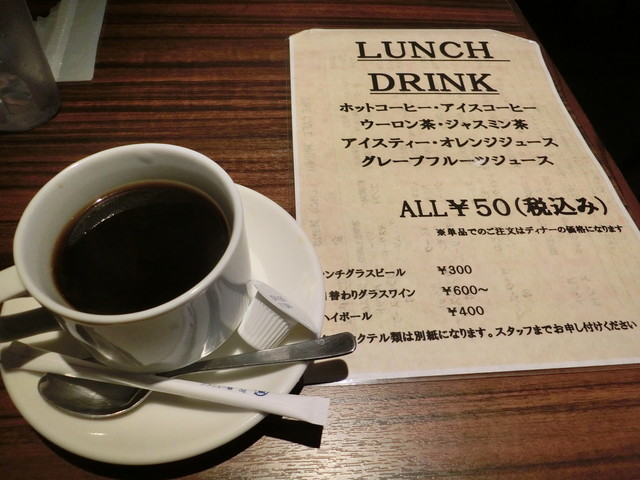 LUNCH
DRINK
ホットコーヒー・アイスコーヒー
ウーロン茶・ジャスミン茶
アイスティー・オレンジジュース
グレープフルーツジュース
ALL￥50(税込み)
※単品でのご注文はディナーの価格になります
ンチグラスビール ￥300
替わりグラスワイン ￥600～
ハイボール ￥400
クテル類は別紙になります。スタッフまでお申し付けください